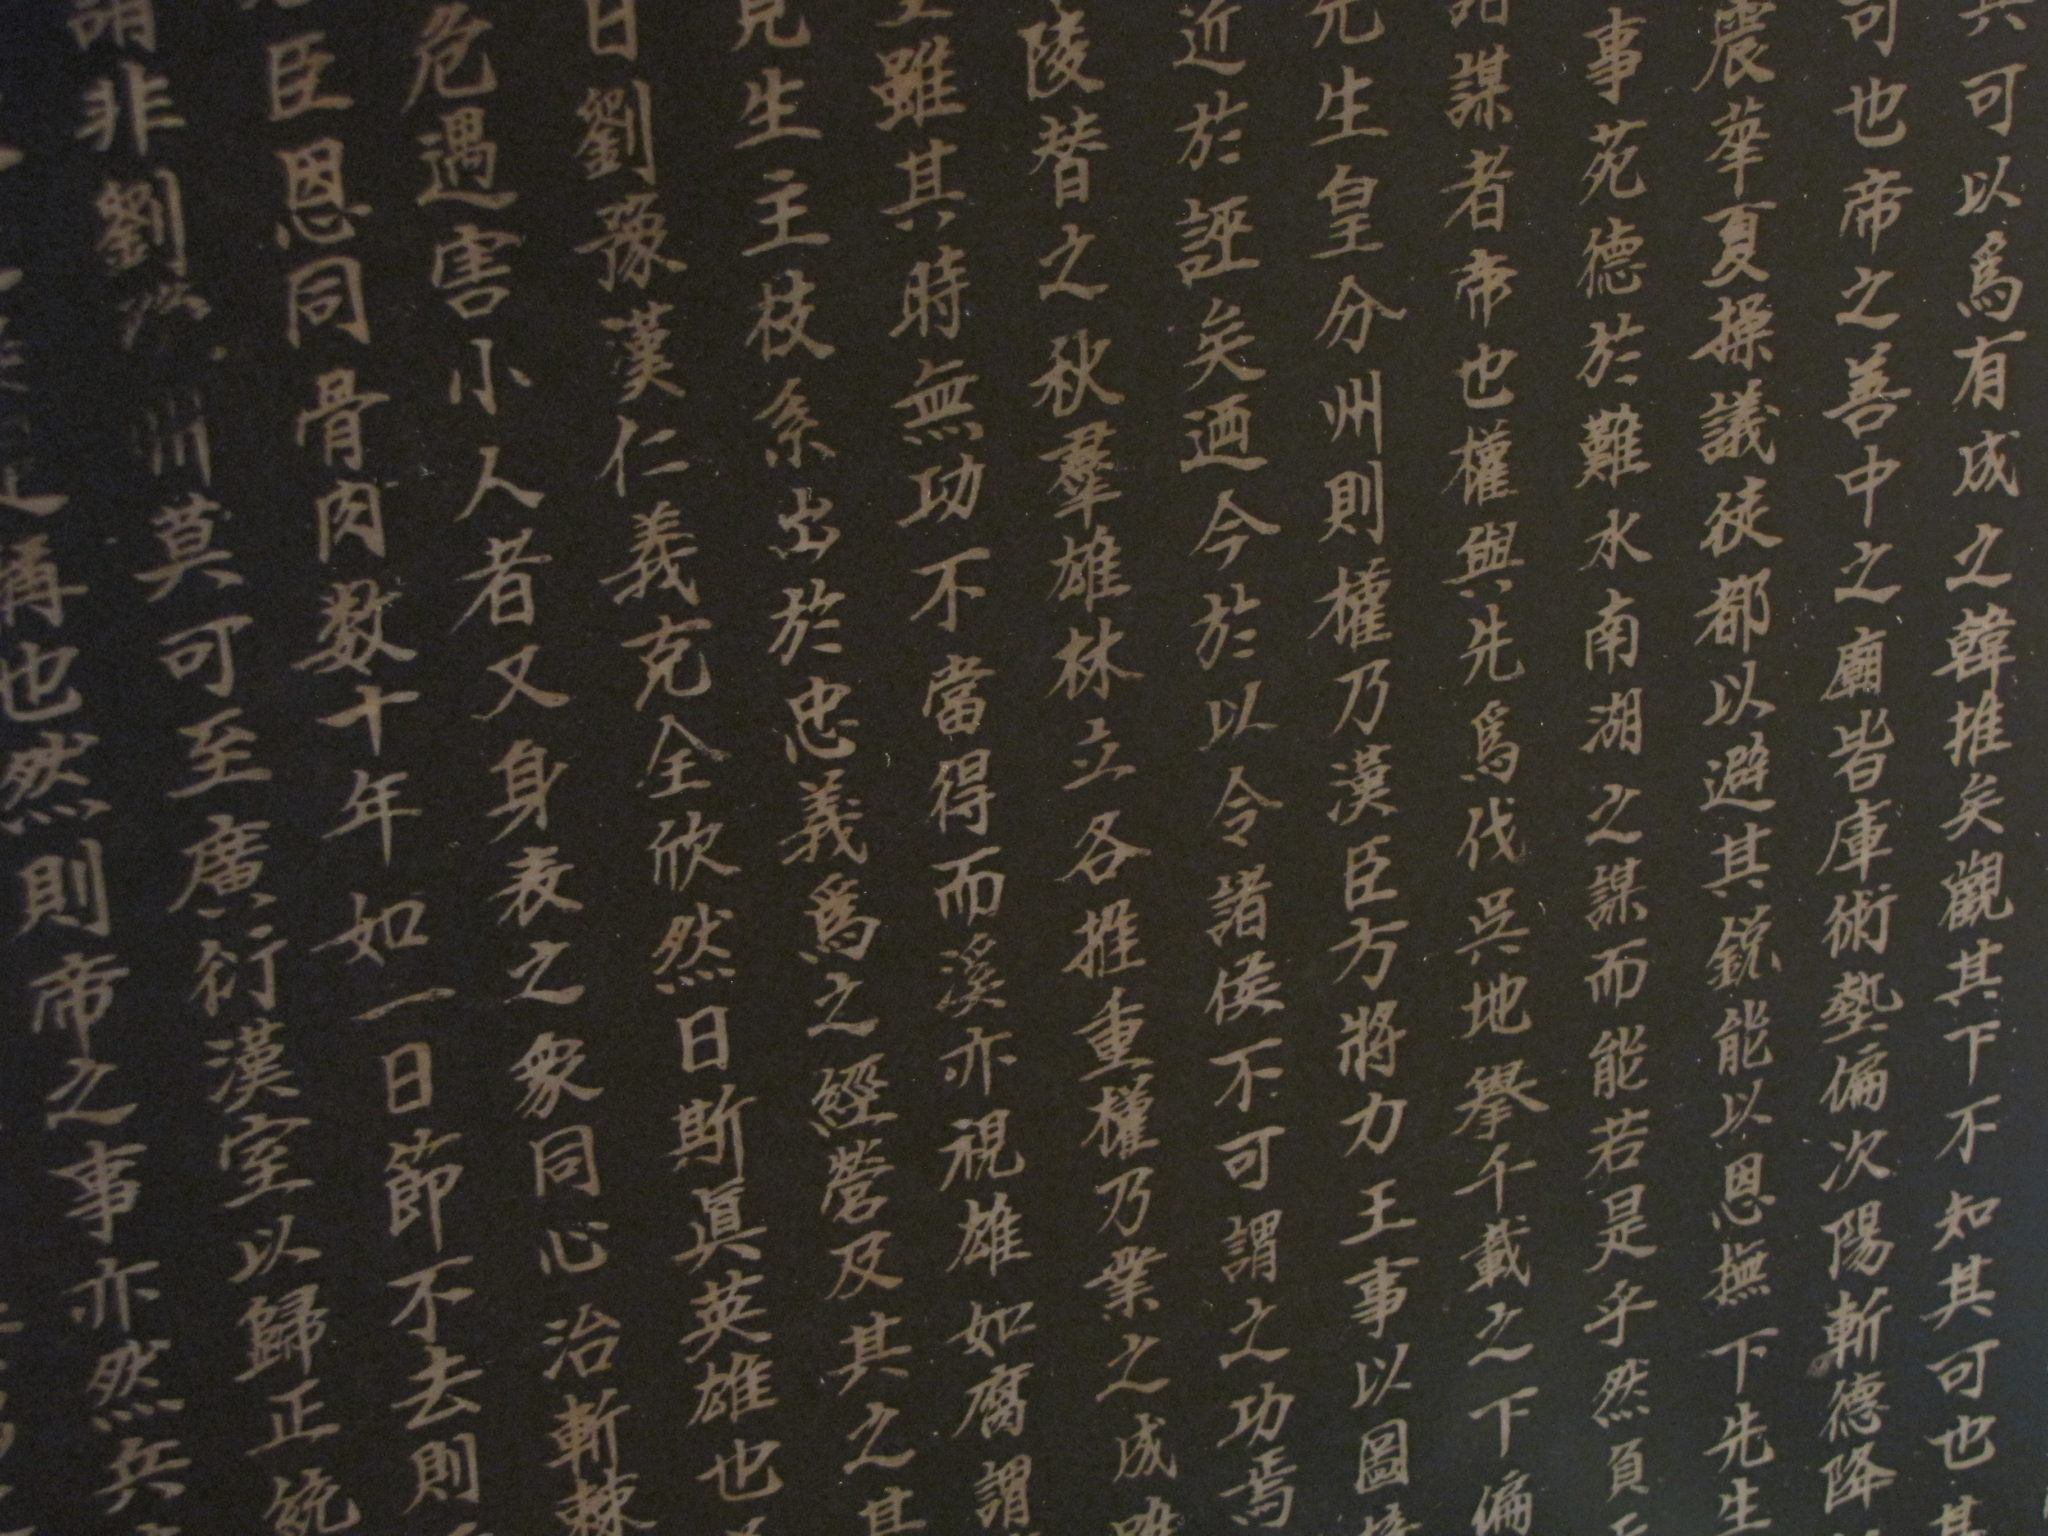 可以爲有成之韓推矣觀其下不知其可也
可也帝之善中之廟皆庫術墊偏次陽斬德降
震華夏操議徒都以避其銳能以恩撫下先生
事苑德於難水南湖之謀而能若是乎然負
謀者帝也權與先爲伐吳地舉千載之下偏
生皇分州則權乃漢臣方將力王事以圖
近於誣矣迺今於以令諸侯不可謂之功焉
陵替之秋羣雄林立各推重權乃業之成
雖其時無功不當得而溪亦視雄如腐謂
見生主枝系出於忠義爲之經營及其之其
日劉豫漢仁義克全欣然曰斯眞英雄也
危遇害小人者又身表之衆同心治斬棘
臣恩同骨肉数十年如一日節不去則
謂非劉 州莫可至廣衍漢室以歸正統
稱也然則帝之事亦然兵